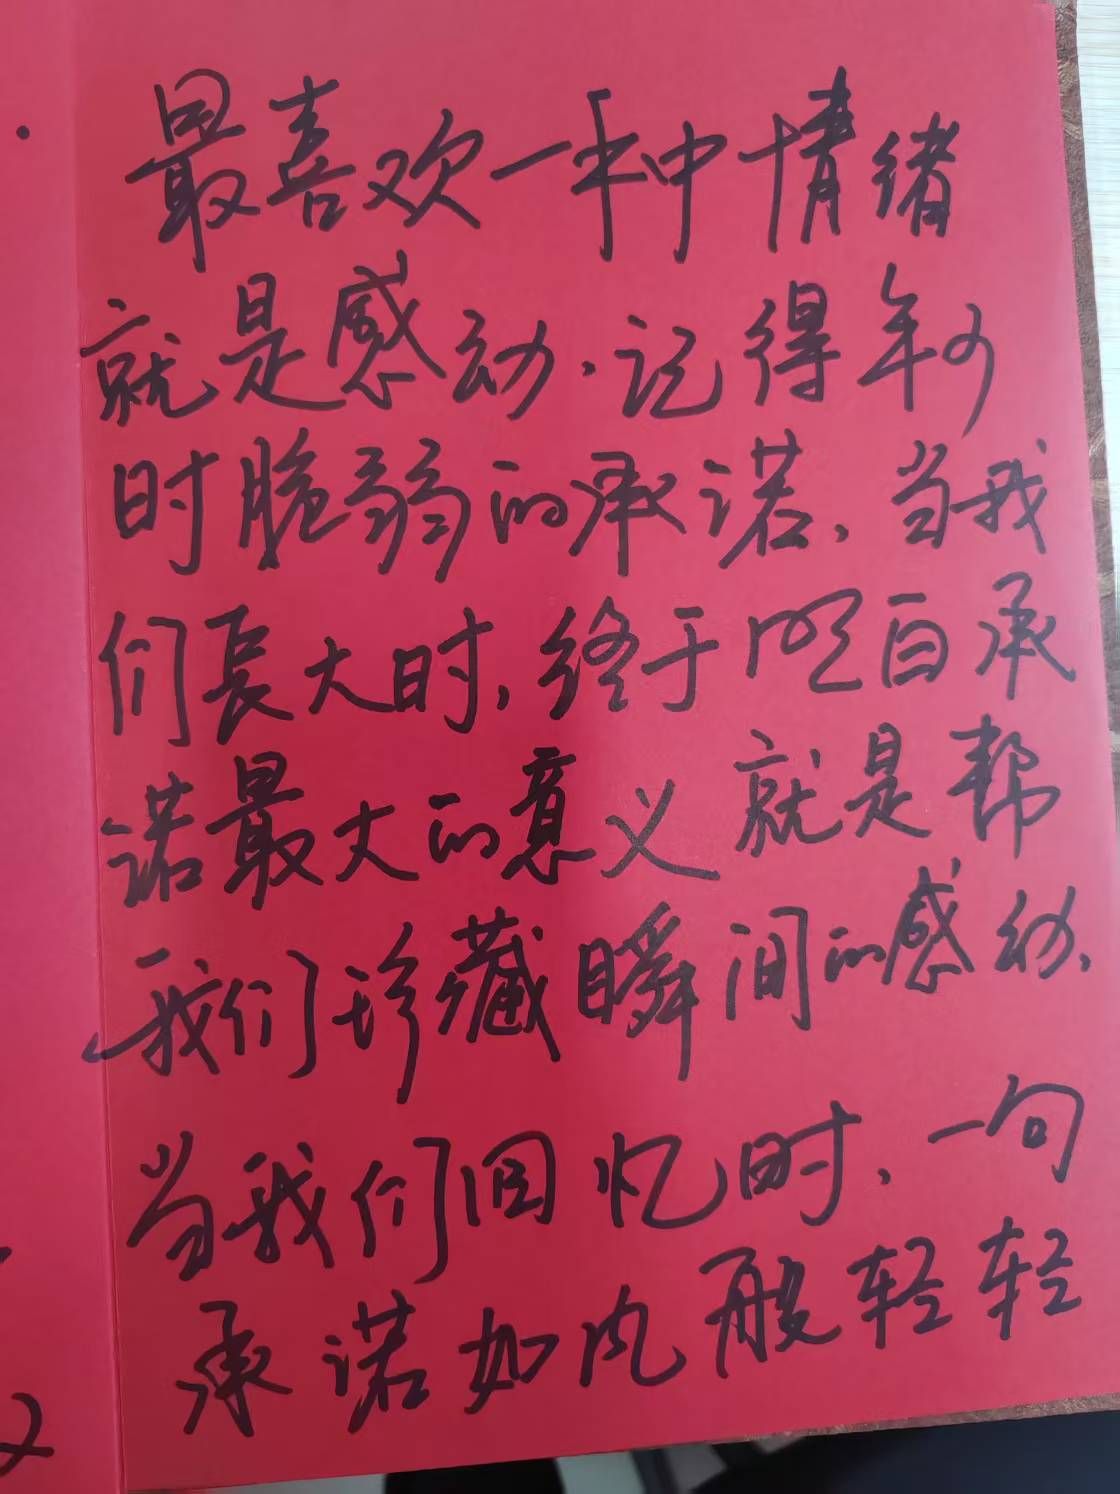 最喜欢一种情绪
就是感动.记得年少
时脆弱的承诺、当我
们长大时,终于明白承
诺最大的意义就是帮
我们珍藏瞬间的感动、
当我们回忆时、一句
承诺如风般轻轻